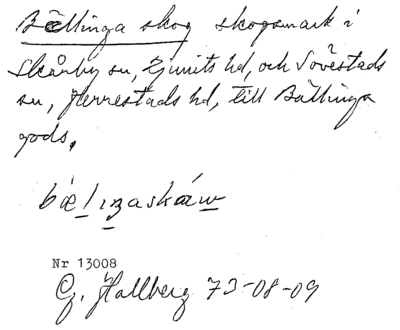 Bellinga skog skogsmark i
Skårby sn, Ljunits hd, och Sövestads
sn, Herrestads hd, till Bällinga
gods.
Nr 13008
G. Hallberg 73-08-09